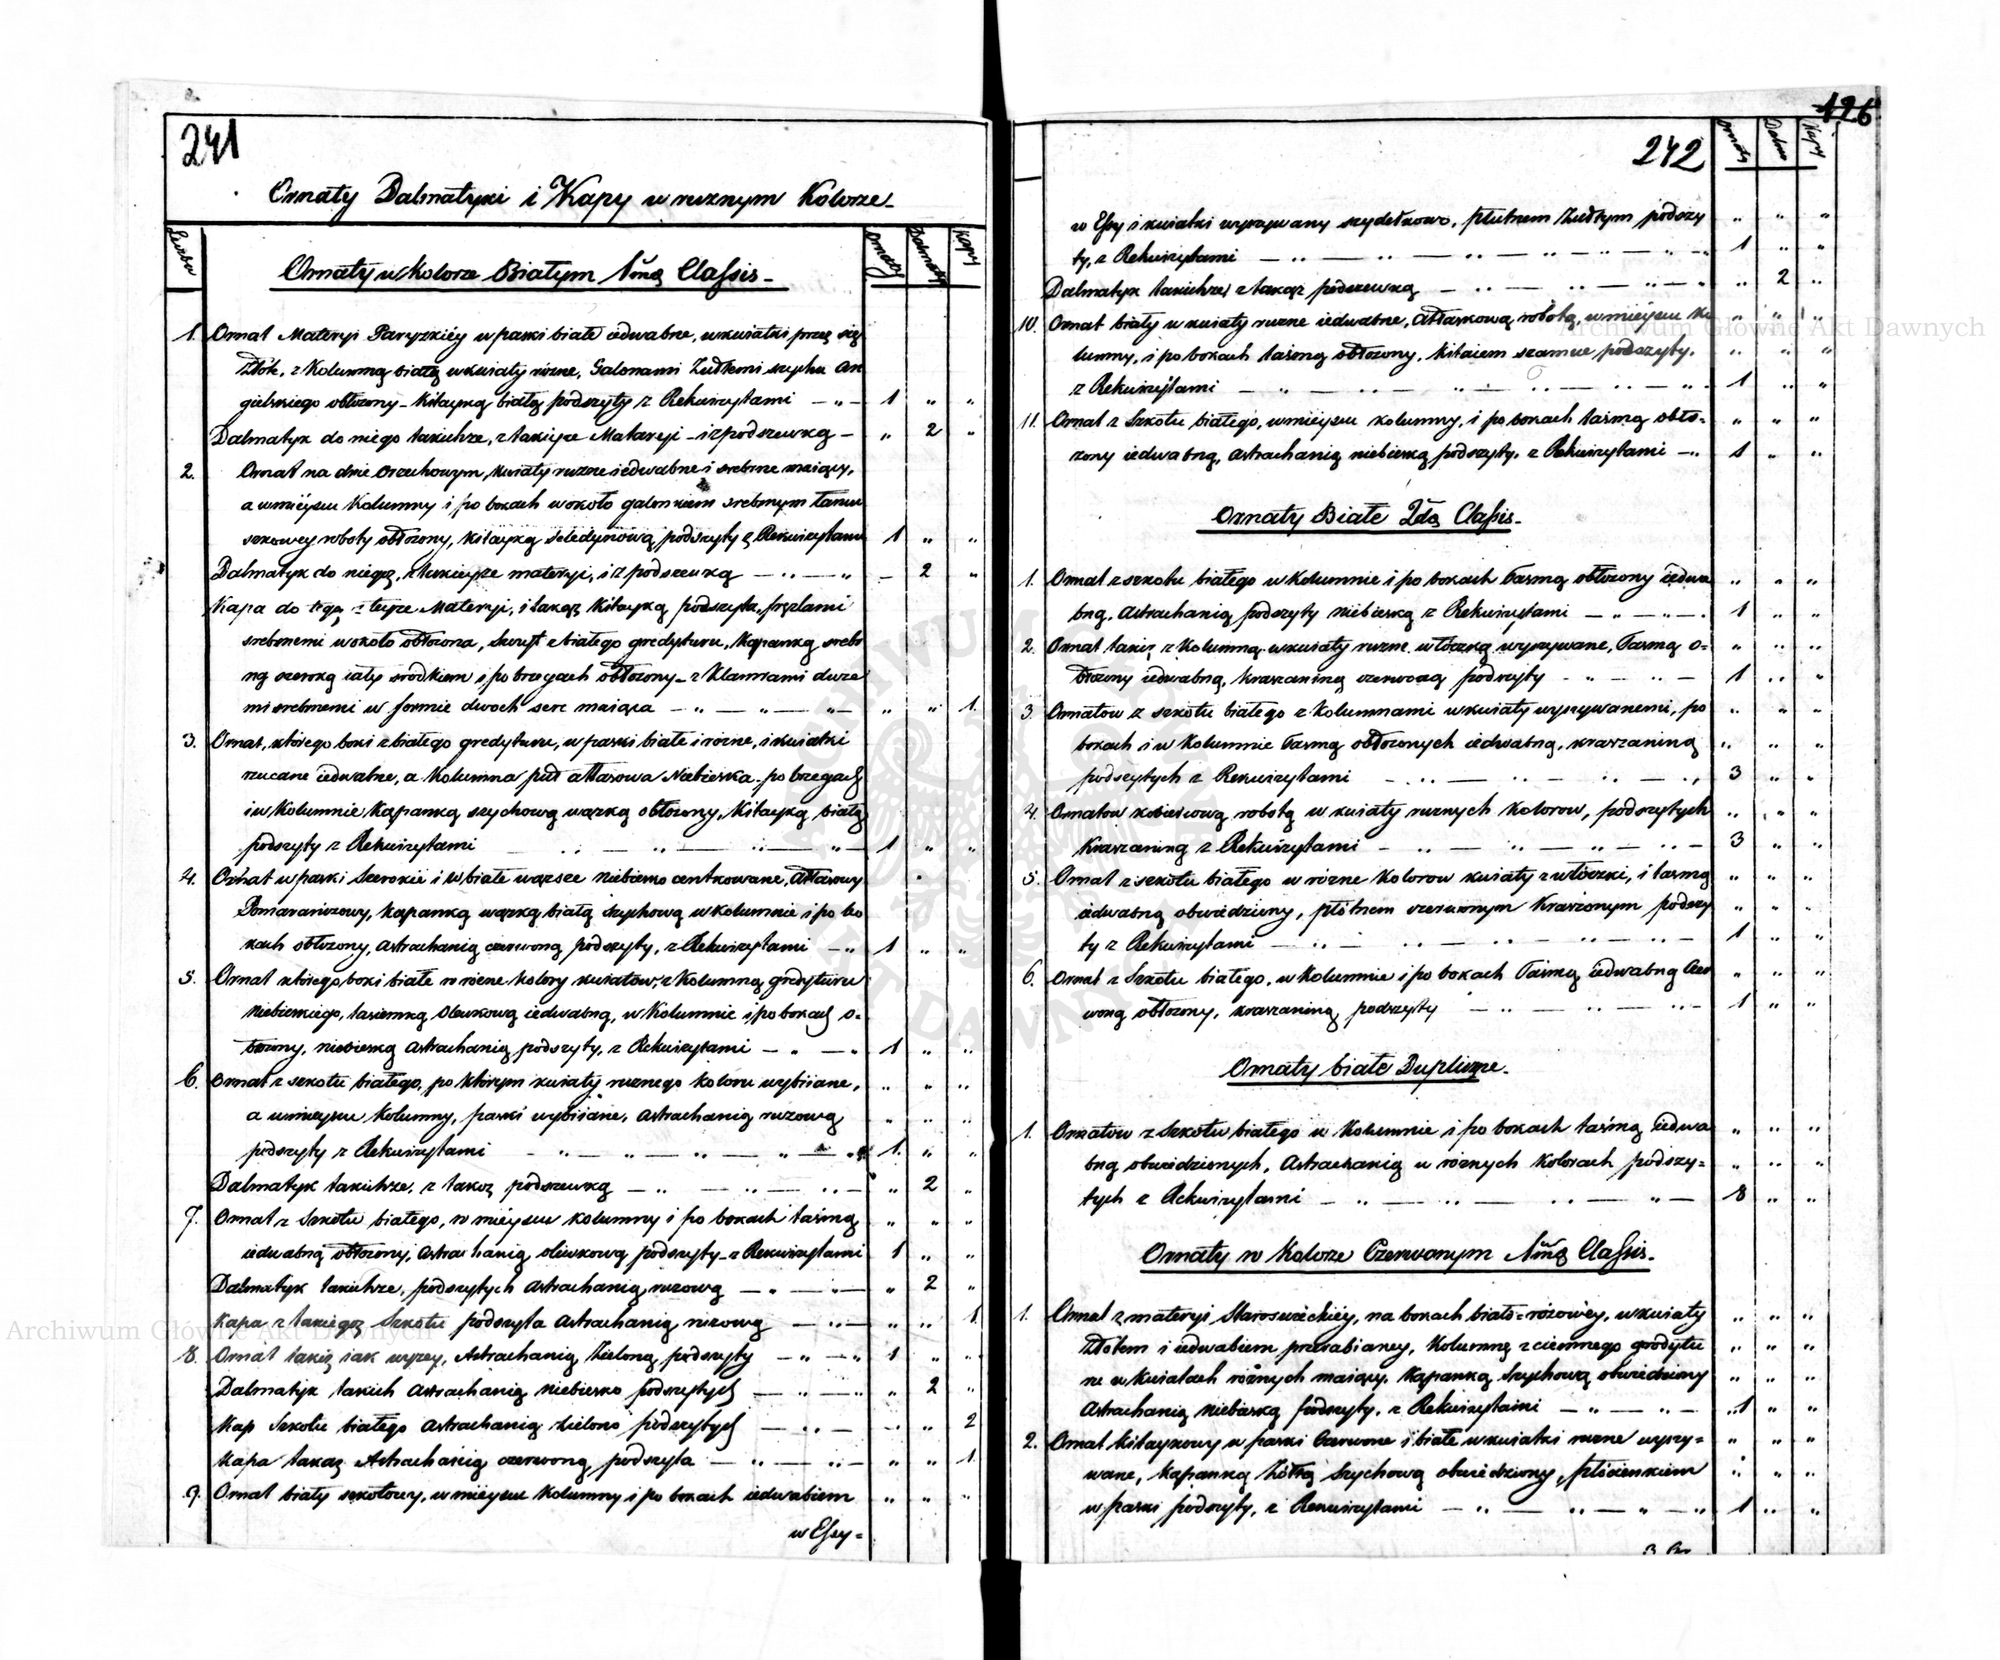 241
Ornaty Dalmatyki i Kapy w ruznym Kolorze
Liczba
Ornaty w Kolorze Białym 1mæ Classis
Ornaty
Dalmatyki
Kapy
1. Ornat Materyi Paryzkiéy w paski białe iedwabne, w kwiatki przez się
Złote, z Kolumną białą w kwiaty rózne, Galonami Zułtemi szychu An
gielskiego obłożony – Kitayką białą podszyty z Rekwizytami — „ — 1 „ „
Dalmatyk do niego takichże, z takieyże Materyi – i z podszewką – „ 2 „
2. Ornat na dnie Orzechowym, kwiaty ruzne iedwabne i srebrne maiący,
a w mieyscu Kolumny i po bokach wokoło galonkiem srebrnym łańcu
szkowey roboty obłożony, Kitayką seledynową podszyty z Rekwizytami 1 „ „
Dalmatyk do niegoż, z takieyże materyi, i z podszewką — „ — „ – 2 „
Kapa do tegoż z teyże Materyi, i takąż Kitayką podszyta, fręzlami
srebrnemi wokoło obłożona, Szczyt z białego gredyturu, Kapanką srebr
ną szeroką cały srodkiem i po brzegach obłożony – z Klamrami dwie
mi srebrnemi w formie dwoch serc maiąca — „ — „ — „ — „ „ 1.
3. Ornat, którego boki z białego gredyturu, w paski białe i rózne, i kwiatki
rzucane iedwabne, a Kolumna puł atłasowa Niebieska – po brzegach
i w Kolumnie Kapanką szychową wązką obłożony, Kitayką białą
podszyty z Rekwizytami „ — „ — „ — „ 1 „ „
4. Ornat w paski Szerokie i w białe wązsze niebiesko centkowane, Atłasowy
Pomarańczowy, Kapanką wązką białą szychową w Kolumnie i po bo
kach obłożony, Astrachanią czerwoną podszyty, z Rekwizytami — „ 1 „ „
5. Ornat którego boki białe w rózne kolory kwiatów, z Kolumną gredyturu
niebieskiego, tasiemką Oliwkową iedwabną, w Kolumnie i po bokach o=
błożony, niebieską Astrachanią podszyty, z Rekwizytami — „ — „ 1 „ „
6. Ornat z szkotu białego, po którym kwiaty ruznego Koloru wybiiane, „ „ „
a w mieyscu Kolumny, paski wybiiane, Astrachanią ruzową „ „ „
podszyty z Rekwizytami — „ — „ — „ — „ 1. „ „
Dalmatyk takichże, z takoż podszewką — „ — „ — „ 2 „
7. Ornat z Szkotu białego, w mieyscu kolumny i po bokach tasmą „ „ „
iedwabną obłożony, Astrachanią oliwkową podszyty – z Rekwizytami 1 „ „
Dalmatyk takichże, podszytych Astrachanią ruzową — „ — „ 2 „
Kapa z takiegoż Szkotu podszyta Astrachanią ruzową — „ — „ „ 1
8. Ornat takiż iak wyzey, Astrachanią Zieloną podszyty — „ — „ 1 „ „
Dalmatyk takich Astrachanią niebiesko podszytych — „ — „ 2 „
Kap Szkotu białego Astrachanią zielono podszytych — „ — „ „ 2
Kapa takaż Astrachanią czerwoną podszyta — „ — „ „ „ 1
9. Ornat biały szkotowy, w mieyscu Kolumny i po bokach iedwabiem „ „ „
w Essy=
126
242
Ornaty
Dalm
Kapy
w Essy i kwiatki wyszywany szydełkowo, Płutnem Zułtym podszy „ „ „
ty, z Rekwizytami — „ — „ — „ — „ 1 „ „
Dalmatyk takichże z takąż podszewką — „ — „ — „ „ 2 „
10. Ornat biały w kwiaty ruzne iedwabne, Atłaskową robotą, w mieyscu Ko „ „ „
lumny, i po bokach tasmą obłożony, Kitaiem szamua podszyty, „ „ „
z Rekwizytami — „ — „ — „ — „ 1 „ „
11. Ornat z Szkotu białego, w mieyscu kolumny, i po bokach tasmą obło= „ „ „
zony iedwabną, Astrachanią niebieską podszyty, z Rekwizytami — „ 1 „ „
Ornaty Białe 2dæ Classis.
1. Ornat z szkotu białego w Kolumnie i po bokach Tasmą obłożony iedwa „ „ „
bną, Astrachanią podszyty niebieską z Rekwizytami — „ — „ 1 „ „
2. Ornat takiż z Kolumną w kwiaty ruzne włóczką wyszywane, Tasmą o= „ „ „
błożony iedwabną, kraszaniną czerwoną podszyty — „ — „ 1 „ „
3. Ornatow z szkotu białego z Kolumnami w kwiaty wyszywanemi, po „ „ „
bokach i w Kolumnie Tasmą obłożonych iedwabną, kraszaniną „ „ „
podszytych z Rekwizytami — „ — „ — „ 3 „ „
4. Ornatow kobiercową robotą w kwiaty ruznych Kolorow, podszytych „ „ „
Kraszaniną z Rekwizytami — „ — „ — „ — „ 3 „ „
5. Ornat z szkotu białego w rózne Kolorow kwiaty z włóczki, i tasmą „ „ „
iedwabną obwiedziony, płótnem czerwonym Kraszonym podszy „ „ „
ty z Rekwizytami — „ — „ — „ — „ 1 „ „
6. Ornat z Szkotu białego, w Kolumnie i po bokach Tasmą iedwabną Czer „ „ „
woną obłożony, kraszaniną podszyty — „ — „ — „ 1 „ „
Ornaty białe Duplicze.
1. Ornatow z Szkotu białego w Kolumnie i po bokach tasmą iedwa „ „ „
bną obwiedzionych, Astrachanią w róznych Kolorach podszy= „ „ „
tych z Rekwizytami — „ — „ — „ — „ 8 „ „
Ornaty w Kolorze Czerwonym 1mæ Classis.
1. Ornat z materyi Staroswieckiéy, na bokach biało=rózowéy, w kwiaty „ „ „
złotem i iedwabiem przerabianey, Kolumnę z ciemnego grodytu „ „ „
ru w kwiatach róznych maiący, Kapanką Szychową obwiedziony „ „ „
Astrachanią niebieską podszyty, z Rekwizytami — „ — „ — 1 „ „
2. Ornat Kitaykowy w paski Czerwone i białe w kwiatki ruzne wyszy= „ „ „
wane, Kapanką żółtą Szychową obwiedziony, płócienkiem „ „ „
w paski podszyty, z Rekwizytami — „ — „ — „ — „ 1 „ „
Archiwum Główne Akt Dawnych
Archiwum Główne Akt Dawnych